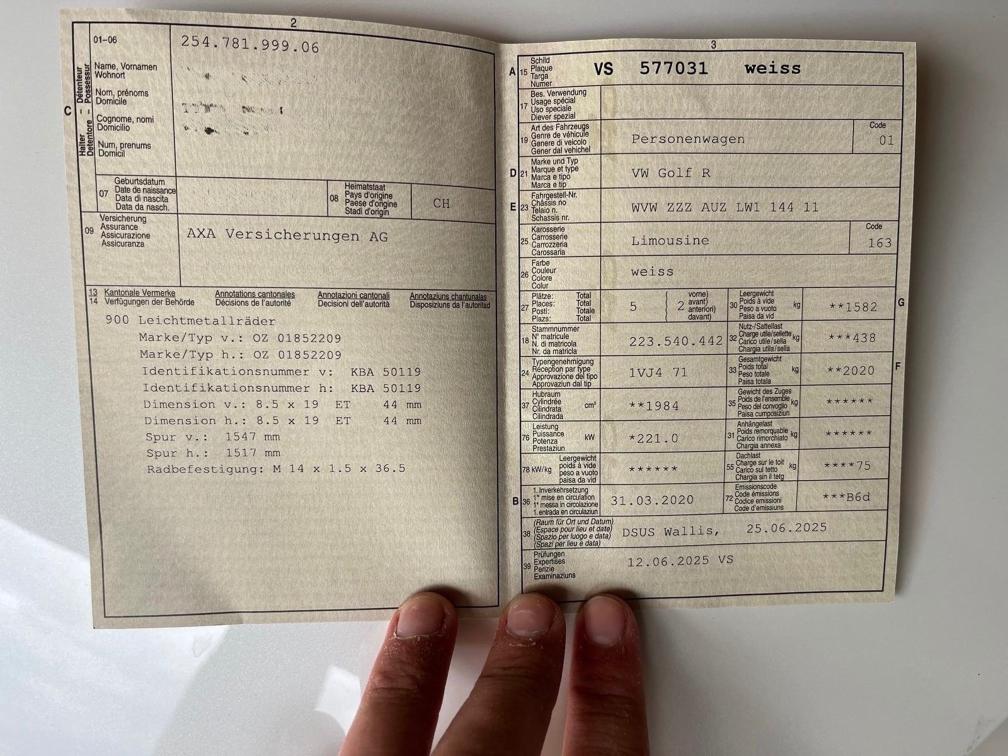 2
01–06
254.781.999.06
C
Halter – Détenteur
Detentore – Possessur
Name, Vornamen
Wohnort
Nom, prénoms
Domicile
Cognome, nomi
Domicilio
Num, prenums
Domicil
07
Geburtsdatum
Date de naissance
Data di nascita
Data da nasch.
08
Heimatstaat
Pays d'origine
Paese d'origine
Stadi d'origin
CH
09
Versicherung
Assurance
Assicurazione
Assicuranza
AXA Versicherungen AG
13
14
Kantonale Vermerke
Verfügungen der Behörde
Annotations cantonales
Décisions de l'autorité
Annotazioni cantonali
Decisioni dell'autorità
Annotaziuns chantunalas
Disposiziuns da l'autoritad
900 Leichtmetallräder
Marke/Typ v.: OZ 01852209
Marke/Typ h.: OZ 01852209
Identifikationsnummer v: KBA 50119
Identifikationsnummer h: KBA 50119
Dimension v.: 8.5 x 19 ET 44 mm
Dimension h.: 8.5 x 19 ET 44 mm
Spur v.: 1547 mm
Spur h.: 1517 mm
Radbefestigung: M 14 x 1.5 x 36.5
3
A
15
Schild
Plaque
Targa
Numer
VS 577031 weiss
17
Bes. Verwendung
Usage spécial
Uso speciale
Diever spezial
19
Art des Fahrzeugs
Genre de véhicule
Genere di veicolo
Gener dal vehichel
Personenwagen
Code
01
D
21
Marke und Typ
Marque et type
Marca e tipo
Marca e tip
VW Golf R
E
23
Fahrgestell-Nr.
Châssis no
Telaio n.
Schassis nr.
WVW ZZZ AUZ LW1 144 11
25
Karosserie
Carrosserie
Carrozzeria
Carossaria
Limousine
Code
163
26
Farbe
Couleur
Colore
Colur
weiss
27
Plätze: Total
Places: Total
Posti: Totale
Plazs: Total
5
2
vorne)
avant)
anteriori)
davant)
30
Leergewicht
Poids à vide
Peso a vuoto
Paisa da vid
kg
**1582
G
18
Stammnummer
N° matricule
N. di matricola
Nr. da matricla
223.540.442
32
Nutz-/Sattellast
Charge utile/sellette
Carico utile/sella
Chargia utila/sella
kg
***438
24
Typengenehmigung
Réception par type
Approvazione del tipo
Approvaziun dal tip
1VJ4 71
33
Gesamtgewicht
Poids total
Peso totale
Paisa totala
kg
**2020
F
37
Hubraum
Cylindrée
Cilindrata
Cilindrada
cm³
**1984
35
Gewicht des Zuges
Poids de l'ensemble
Peso del convoglio
Paisa cumposiziun
kg
******
76
Leistung
Puissance
Potenza
Prestaziun
kW
*221.0
31
Anhängelast
Poids remorquable
Carico rimorchiato
Chargia annexa
kg
******
78 kW/kg
Leergewicht
poids à vide
peso a vuoto
paisa da vid
******
55
Dachlast
Charge sur le toit
Carico sul tetto
Chargia sin il tetg
kg
****75
B
36
1. Inverkehrsetzung
1re mise en circulation
1a messa in circolazione
1. entrada en circulaziun
31.03.2020
72
Emissionscode
Code émissions
Codice emissioni
Code d'emissiuns
***B6d
38
(Raum für Ort und Datum)
(Espace pour lieu et date)
(Spazio per luogo e data)
(Spazi per lieu e data)
DSUS Wallis, 25.06.2025
39
Prüfungen
Expertises
Perizie
Examinaziuns
12.06.2025 VS